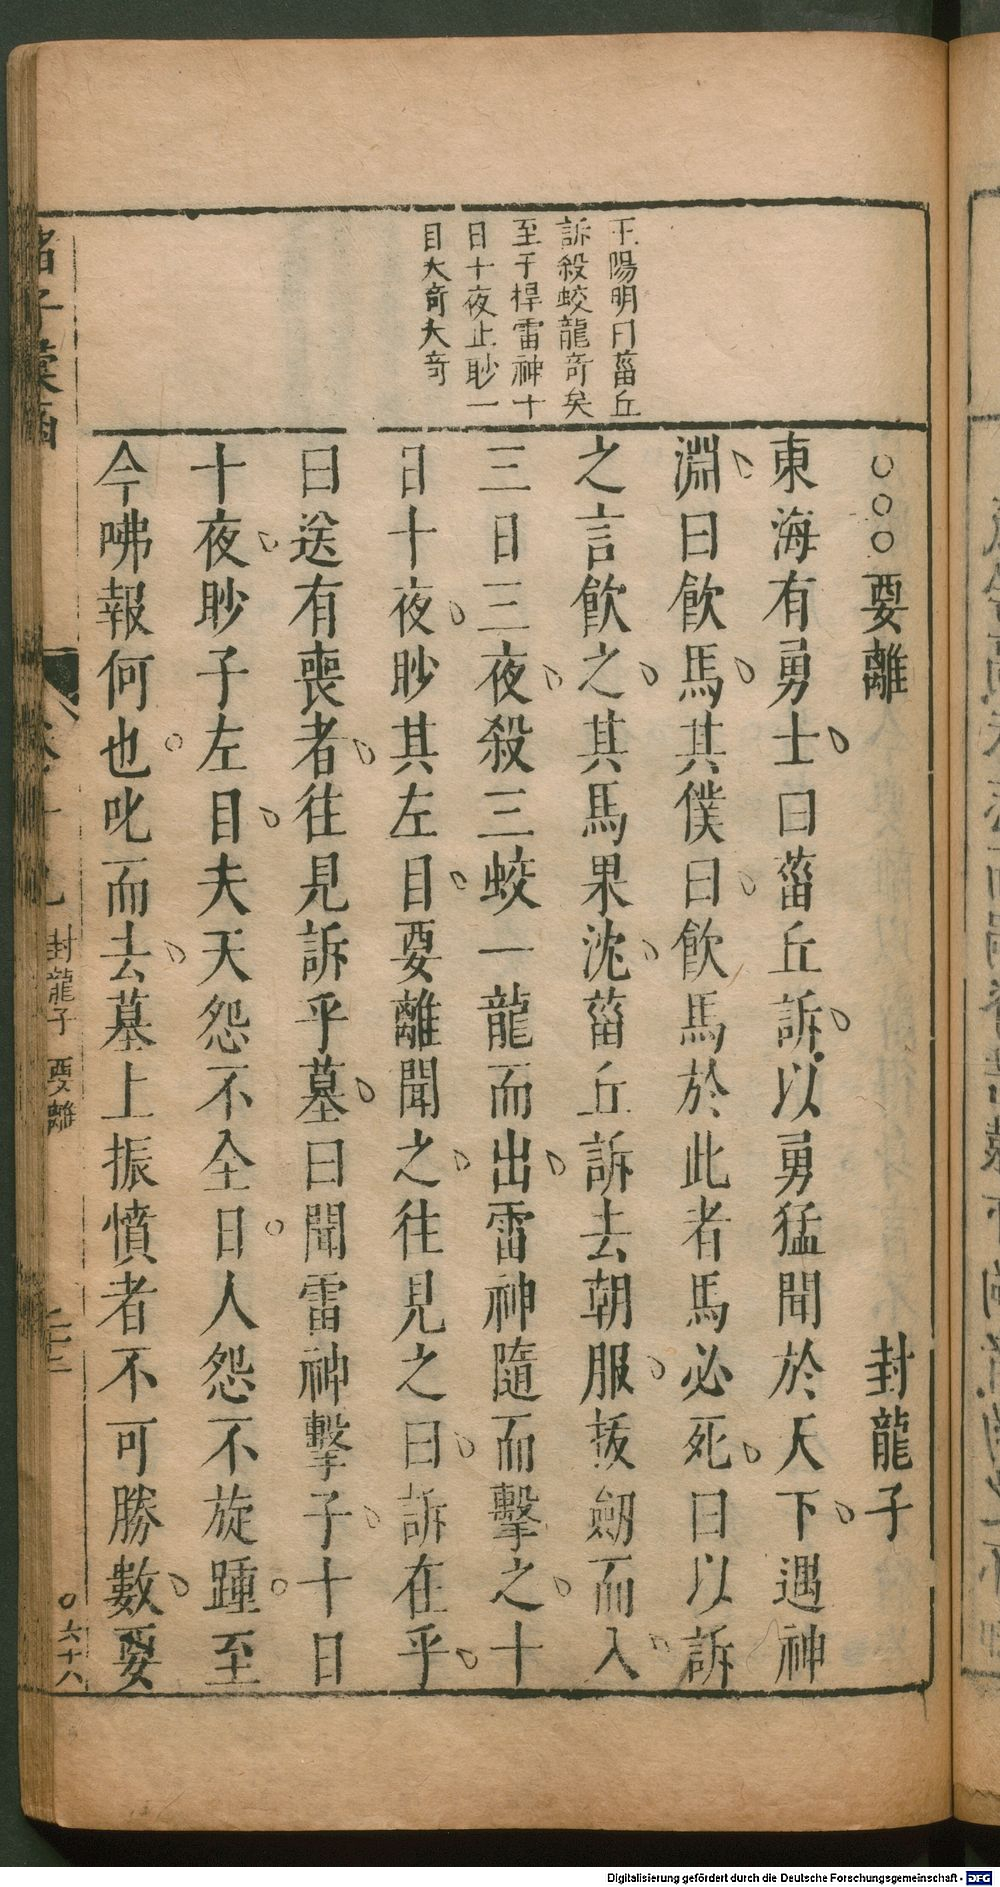 王陽明曰菑丘
訴殺蛟龍奇矣
至于桿雷神十
日十夜止眇一
目大奇大奇
○○○要離　封龍子
東海有勇士曰菑丘訴以勇猛聞於天下遇神
淵曰飲馬其僕曰飲馬於此者馬必死曰以訴
之言飲之其馬果沈菑丘訴去朝服拔劒而入
三日三夜殺三蛟一龍而出雷神隨而擊之十
日十夜眇其左目要離聞之往見之曰訴在乎
曰送有喪者往見訴乎墓曰聞雷神擊子十日
十夜眇子左目夫天怨不全日人怨不旋踵至
今咈報何也叱而去墓上振憤者不可勝數要
諸子彙函
封龍子 要離
六十八
Digitalisierung gefördert durch die Deutsche Forschungsgemeinschaft - DFG